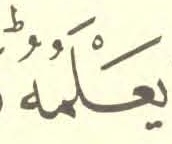 يعْلَمُهُ ؕ